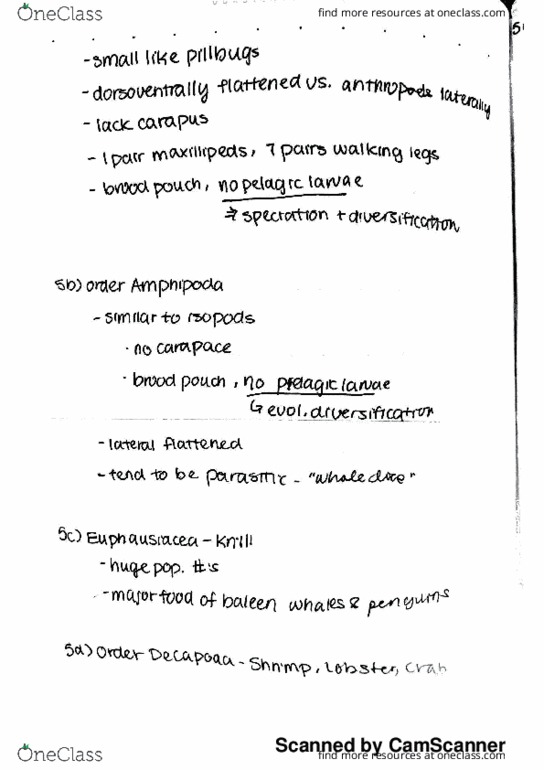 OneClass
find more resources at oneclass.com
51
-small like pillbugs
-dorsoventrally flattened vs. anthropods laterally
-lack carapus
-1 pair maxillipeds, 7 pairs walking legs
-brood pouch, no pelagic larvae
→ speciation + diversification
5b) order Amphipoda
-similar to isopods
· no carapace
· brood pouch, no prelagic larvae
↳ evol. diversification
-lateral flattened
-tend to be parasitic - "whale dice"
5c) Euphausiacea - Krill
-huge pop. #s
-major food of baleen whales & penguins
5d) Order Decapoda - Shrimp, Lobster, Crab
Scanned by CamScanner
OneClass
find more resources at oneclass.com